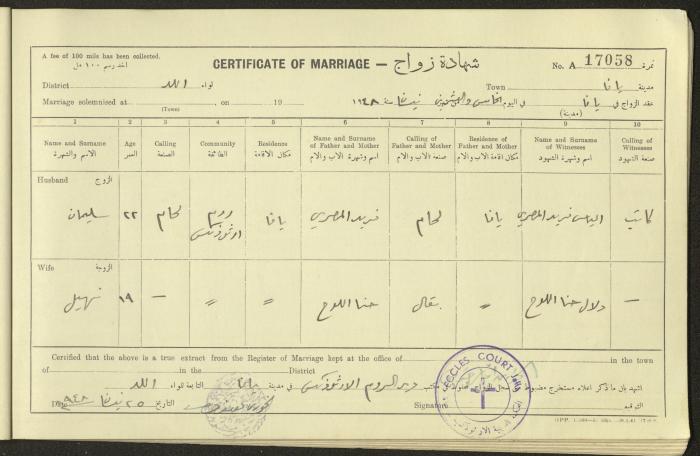 A fee of 100 mils has been collected.
أخذ رسم ١٠٠ مل
CERTIFICATE OF MARRIAGE — شهادة زواج
No. A 17058 نمرة
District لواء اللد
Town مدينة يافا
Marriage solemnised at , on 19
(Town)
في اليوم الخامس والعشرين نيسان سنة ١٩٤٨
عقد الزواج في يافا
(مدينة)
1 2 3 4 5 6 7 8 9 10
Name and Surname
الاسم والشهرة
Age
العمر
Calling
الصنعة
Community
الطائفة
Residence
مكان الاقامة
Name and Surname of Father and Mother
اسم وشهرة الاب والام
Calling of Father and Mother
صنعة الاب والام
Residence of Father and Mother
مكان اقامة الاب والام
Name and Surname of Witnesses
اسم وشهرة الشهود
Calling of Witnesses
صنعة الشهود
Husband الزوج
سليمان ٢٢ لحام روم ارثوذكس يافا فريد المصري لحام يافا الياس فريد المصري كاتب
Wife الزوجة
١٩ — " " حنا اللوح بقال " دلال حنا اللوح —
Certified that the above is a true extract from the Register of Marriage kept at the office of in the town
of in the District
اشهد بان ما ذكر اعلاه مستخرج
دير الروم الارثوذكس في مدينة يافا التابعة للواء اللد
Date ٢٥ نيسان ٩٤٨ التاريخ
Signature التوقيع
ECCLES. COURT Jaffa